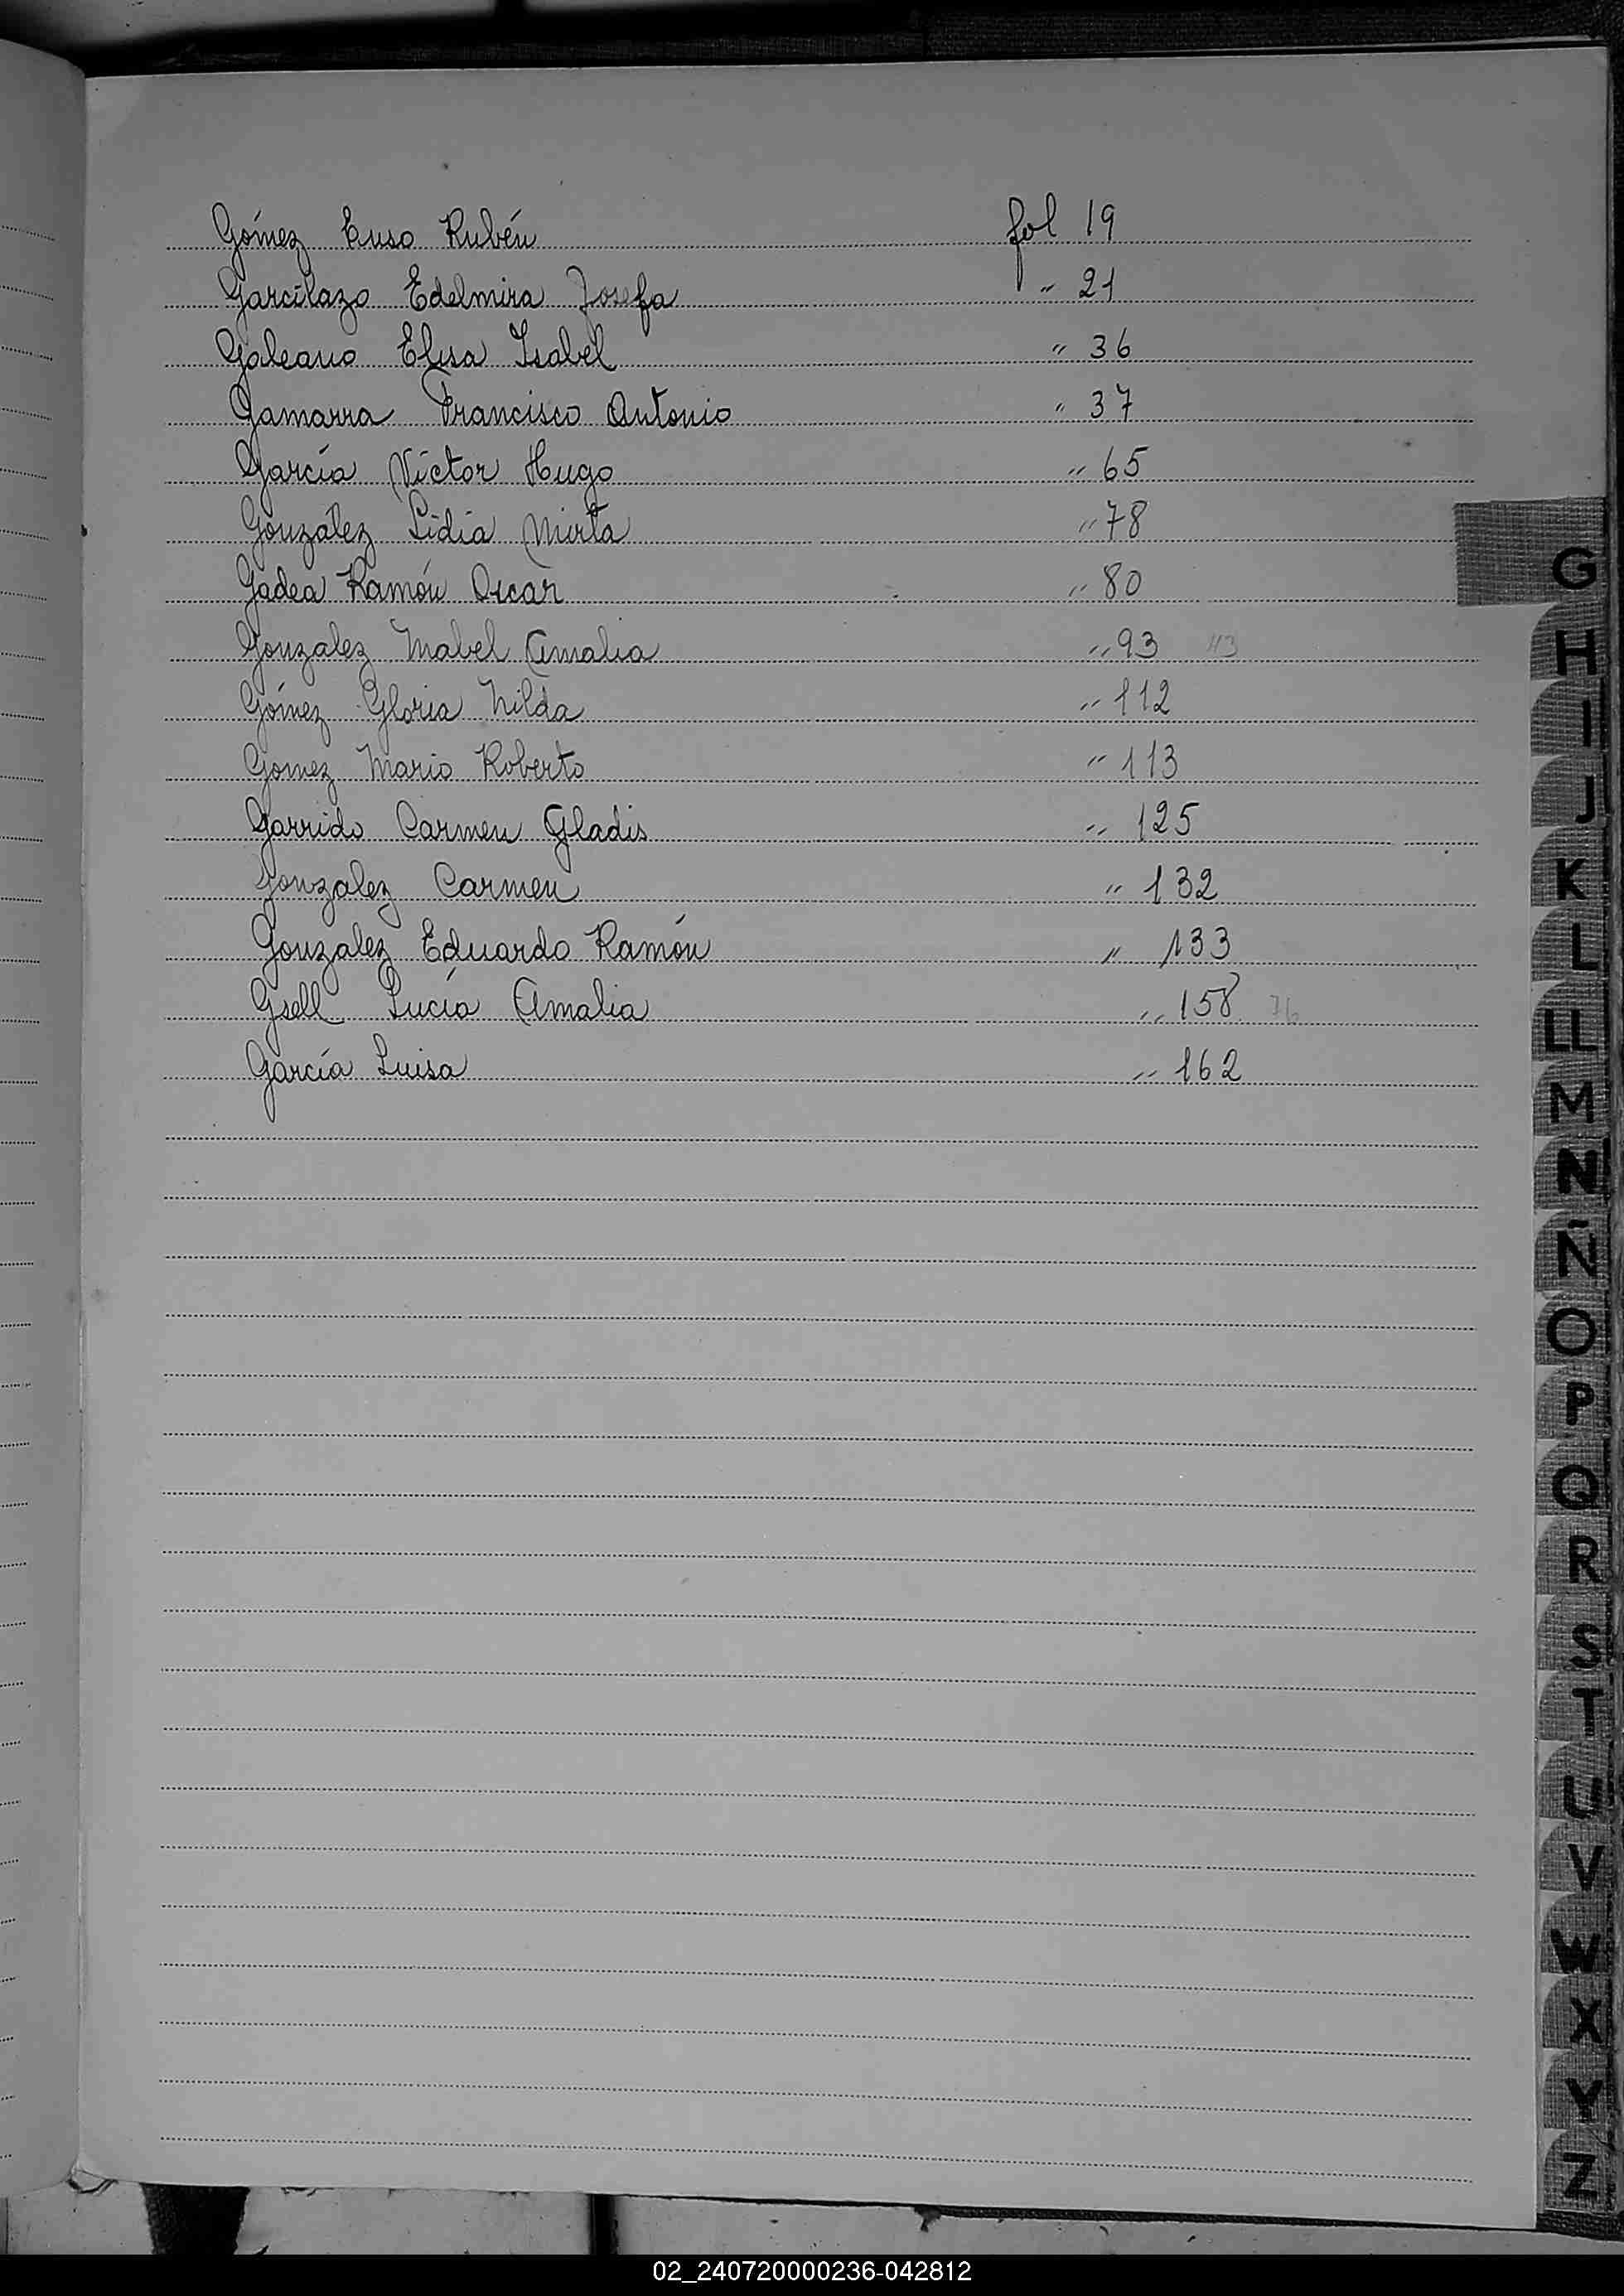 Gómez Enso Rubén fol 19
Garcilazo Edelmira Josefa " 21
Galeano Elisa Isabel " 36
Gamarra Francisco Antonio " 37
García Víctor Hugo " 65
González Lidia Mirta " 78
Gadea Ramón Oscar " 80
Gonzalez Mabel Amalia " 93
Gómez Gloria Nilda " 112
Gomez Mario Roberto " 113
Garrido Carmen Gladis " 125
Gonzalez Carmen " 132
Gonzalez Eduardo Ramón " 133
Gsell Lucía Amalia " 158 76
García Luisa " 162
G
H
I
J
K
L
LL
M
N
Ñ
O
P
Q
R
S
T
U
V
W
X
Y
Z
02_240720000236-042812